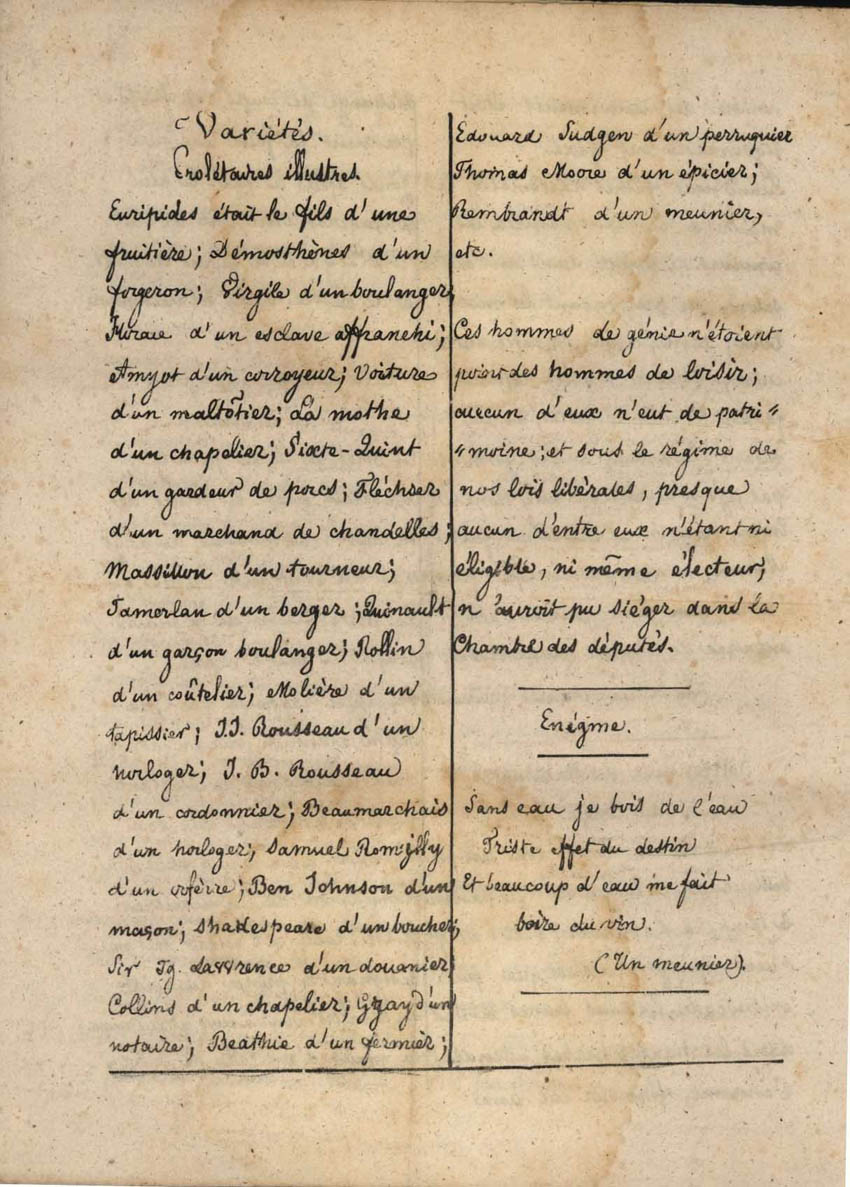 Variétés.
Prolétaires illustres.
Euripides était le fils d'une
fruitière; Démosthènes d'un
forgeron; Virgile d'un boulanger;
Horace d'un esclave affranchi;
Amyot d'un corroyeur; Voiture
d'un maltôtier; La mothe
d'un chapelier; Sixte-Quint
d'un gardeur de porcs; Fléchier
d'un marchand de chandelles;
Massillon d'un tourneur;
Tamerlan d'un berger; Quinault
d'un garçon boulanger; Rollin
d'un coûtelier; Molière d'un
tapissier; J.J. Rousseau d'un
horloger; J. B. Rousseau
d'un cordonnier; Beaumarchais
d'un horloger; Samuel Romilly
d'un orfèvre; Ben Johnson d'un
maçon; Shakespeare d'un boucher;
Sir Tg. Lawrence d'un douanier;
Collins d'un chapelier; Gray d'un
notaire; Beathie d'un fermier;
Edouard Sudgen d'un perruquier
Thomas Moore d'un épicier;
Rembrandt d'un meunier,
etc.
Ces hommes de génie n'étoient
point des hommes de loisir;
aucun d'eux n'eut de patri"
"moine; et sous le régime de
nos lois libérales, presque
aucun d'entre eux n'étant ni
éligible, ni même électeur,
n'auroit pu siéger dans la
Chambre des députés.
Enigme.
Sans eau je bois de l'eau
Triste effet du destin
Et beaucoup d'eau me fait
boire du vin.
(Un meunier).